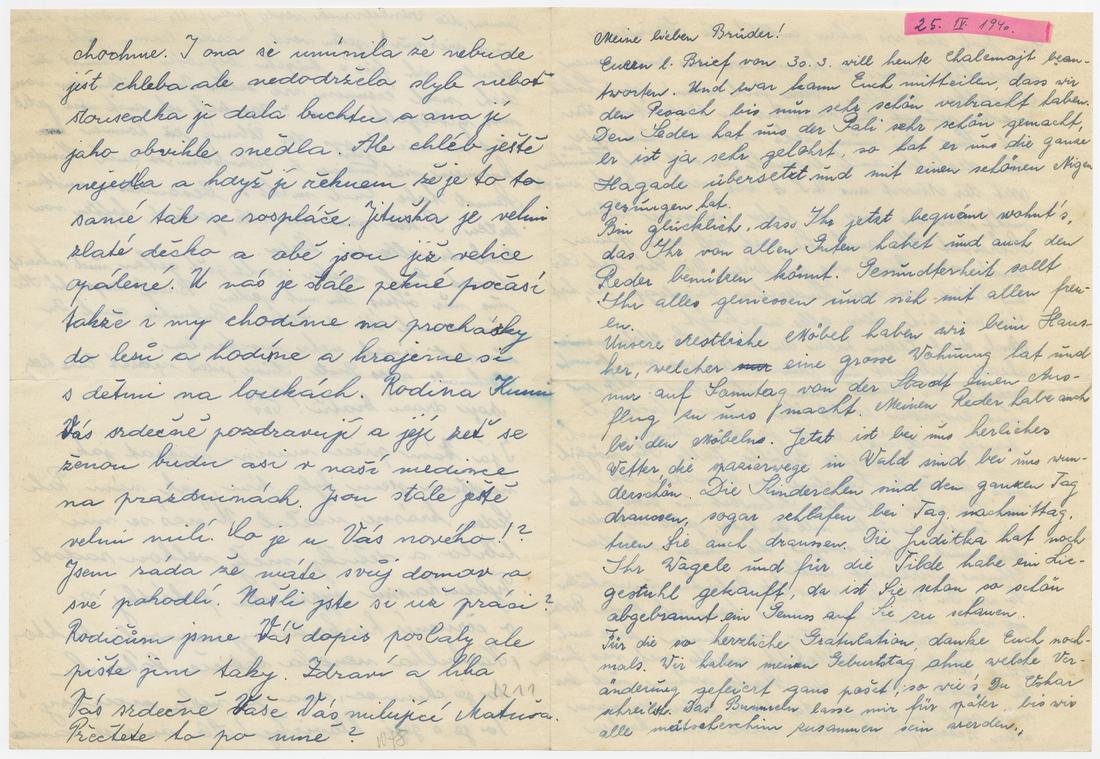 chochme. I ona si umínila že nebude
jíst chleba ale nedodržela slyb neboť
sousedka jí dala buchtu a ana jí
jako obvikle snědla. Ale chléb ještě
nejedla a když jí řeknem že je to to
samé tak se rospláče. Jituška je velmi
zlaté děcko a obě jsou již velice
opálené. U nás je stále pekné počasí
takže i my chodíme na procházky
do lesů a hodíme a hrajeme si
s dětmi na loukách. Rodina
Vás srdečně pozdravují a její zeť se
ženou budu asi v naší medince
na prázdninách. Jsou stále ještě
velmi milí. Co je u Vás nového!?
Jsem ráda že máte svůj domov a
své pohodlí. Našli jste si už práci?
Rodičům jsme Váš dopis poslaly ale
pište jim taky. Zdraví a líbá
Vás srdečně Vaše Vás milující Matuša.
Přečtěte to po mně?
1211
1078
25. IV. 1940.
Meine lieben Brüder!
Eueren l. Brief von 30.3. will heute Chalemojt bean-
tworten. Und zwar kann Euch mitteilen, dass wir
den Pesach bis nun sehr schön verbracht haben.
Den Seder hat uns der Pali sehr schön gemacht,
er ist ja sehr gelöhrt, so hat er uns die ganze
Hagade übersetzt und mit einen schönen Nigen
gezungen hat.
Bin glücklich, dass Ihr jetzt begnäm wohnt's,
das Ihr von allen Guten habet und auch den
Reder benützen könnt. Gesundterheit sollt
Ihr alles geniessen und sich mit allen freu-
en.
Unsere restlishe Möbel haben wir beim Haus-
her, welcher eine grosse Wohnung hat und
nur auf Sonntag von der Stadt einen Aus-
flug zu uns macht. Meinen Reder habe auch
bei den Möbeln. Jetzt ist bei uns herliches
Wetter, die spazierwege in Wald sind bei uns wun-
derschön. Die Kinderchen sind den ganzen Tag
draussen, sogar schlafen bei Tag, nachmittag,
tuen Sie auch draussen. Die Jiditka hat noch
Ihr Wagele und für die Tilde habe ein Lie-
gestuhl gekauft, da ist Sie schon so schön
abgebrannt ein Genus auf Sie zu schauen.
Für die so herzliche Gratulation, danke Euch noch-
mals. Wir haben meinen Geburtstag ohne welche Ver-
änderung gefeiert gans pošit, so wie's Du Oskar
schreibst. Das Bummeln lasse mir für später, bis wir
alle zusammen sein werden.,